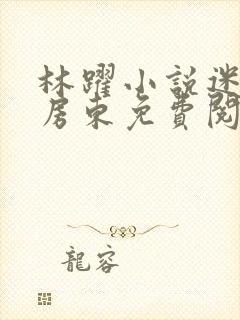 林躍小説迷
房東免費閱
龍容